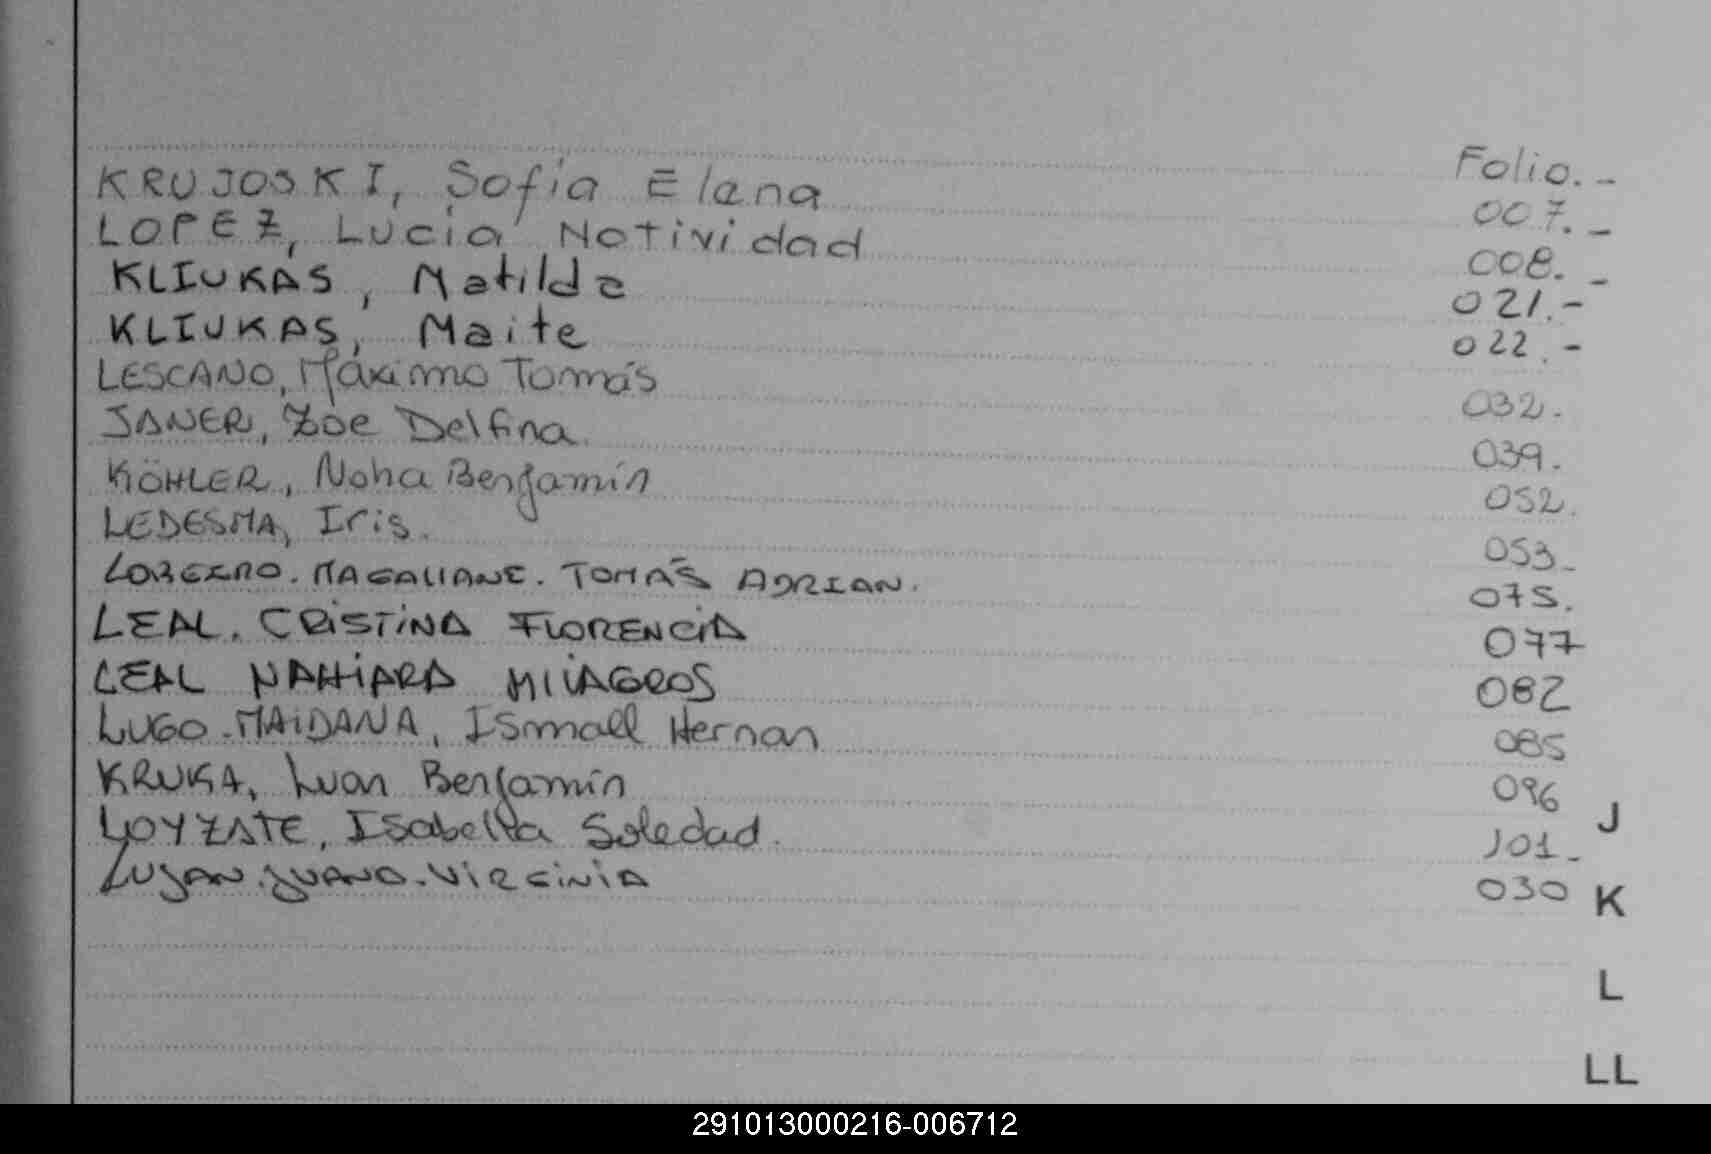 Folio.-
KRUJOSKI, Sofía Elena 007.-
LOPEZ, Lucía Natividad 008.-
KLIUKAS, Matilda 021.-
KLIUKAS, Maite 022.-
LESCANO, Máximo Tomás 032.
JANER, Zoe Delfina. 039.
KÖHLER, Noha Benjamín 052.
LEDESMA, Iris. 053-
TOMÁS ADRIAN. 075.
LEAL. CRISTINA FLORENCIA 077
LEAL NAHIARA MILAGROS 082
LUGO-MAIDANA, Ismael Hernan 085
KRUKA, Luan Benjamín 096
LOYZATE, Isabella Soledad. 101-
LUJAN. JUANA. VIRGINIA 030
J
K
L
LL
291013000216-006712